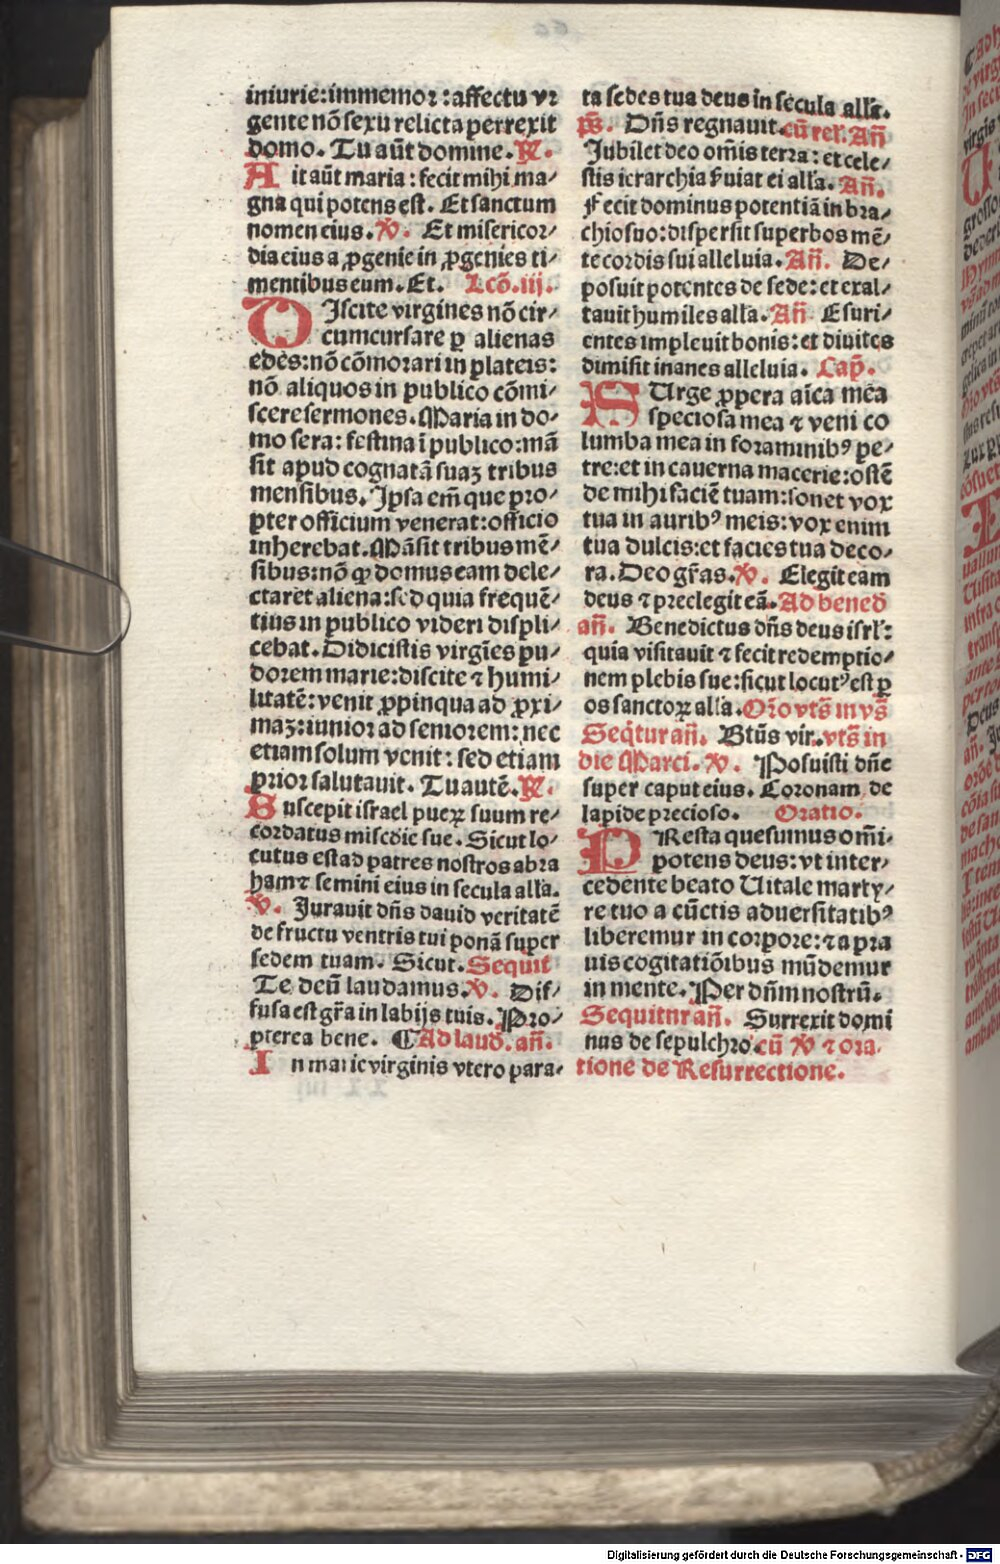 iniurie:immemoꝛ:affectu vꝛ
gente nō sexu relicta perrexit
domo. Tu aūt domine. ℟.
Ait aūt maria: fecit mihi ma⸗
gna qui potens est. Et sanctum
nomen eius. ℣. Et misericoꝛ⸗
dia eius a ꝓgenie in ꝓgenies ti⸗
mentibus eum. Et. Lcō.iij.
DIscite virgines nō cir⸗
cumcursare ꝑ alienas
edes:nō cōmoꝛari in plateis:
nō aliquos in publico cōmi⸗
scere sermones. Maria in do⸗
mo sera: festina ī publico:mā
sit apud cognatā suaꝫ tribus
mensibus. Ipsa em̄ que pꝛo⸗
pter officium venerat:officio
inherebat. Māsit tribus mē⸗
sibus:nō ꝙ domus eam dele⸗
ctaret aliena:sed quia frequē⸗
tius in publico videri displi⸗
cebat. Didicistis virgīes pu⸗
dorem marie:discite ⁊ humi⸗
litatē: venit ꝓpinqua ad ꝓxi⸗
maꝫ:iunioꝛ ad seniorem: nec
etiam solum venit: sed etiam
prior salutauit. Tu autē. ℟.
Suscepit israel pueꝝ suum re⸗
coꝛdatus miscdie sue. Sicut lo⸗
cutus est ad patres nostros abra
ham ⁊ semini eius in secula alla.
℣. Jurauit dn̄s dauid veritatē
de fructu ventris tui ponā super
sedem tuam. Sicut. Sequit
Te deū laudamus. ℣. Dif⸗
fusa est gr̄a in labijs tuis. Pꝛo⸗
pterea bene. ¶ Ad laud. an̄.
In marie virginis vtero para⸗
ta sedes tua deus in secula alla.
ps̄. Dn̄s regnauit. cū rel. An̄
Jubilet deo om̄is terra: et cele⸗
stis ierarchia ẜuiat ei alla. An̄.
Fecit dominus potentiā in bra⸗
chio suo:dispersit superbos mē⸗
te cordis sui alleluia. An̄. De⸗
posuit potentes de sede: et exal⸗
tauit humiles alla. An̄ Esuri⸗
entes impleuit bonis: et diuites
dimisit inanes alleluia. Cap̄.
SUrge ꝓpera aīca mea
speciosa mea ⁊ veni co
lumba mea in foꝛaminibꝰ pe⸗
tre:et in cauerna macerie:ostē
de mihi faciē tuam:sonet vox
tua in auribꝰ meis: vox enim
tua dulcis:et facies tua deco⸗
ra. Deo gr̄as. ℣. Elegit eam
deus ⁊ preelegit eā. Ad bened
an̄. Benedictus dn̄s deus isrl:
quia visitauit ⁊ fecit redemptio⸗
nem plebis sue: sicut locutꝰ est ꝑ
os sanctoꝝ alla. Or̄o vts̄ in vs̄
Seq̄tur an̄. Btūs vir. vts̄ in
die Marci. ℣. Posuisti dn̄e
super caput eius. Coronam de
lapide precioso. Oratio.
PResta quesumus om̄i⸗
potens deus: vt inter⸗
cedente beato Uitale marty⸗
re tuo a cūctis aduersitatibꝰ
liberemur in coꝛpoꝛe: ⁊ a pra
uis cogitatiōibus mūdemur
in mente. Per dn̄m nostrū.
Sequitnr an̄. Surrexit domi
nus de sepulchro. cū ℣ ⁊ ora⸗
tione de Resurrectione.
Digitalisierung gefördert durch die Deutsche Forschungsgemeinschaft - DFG